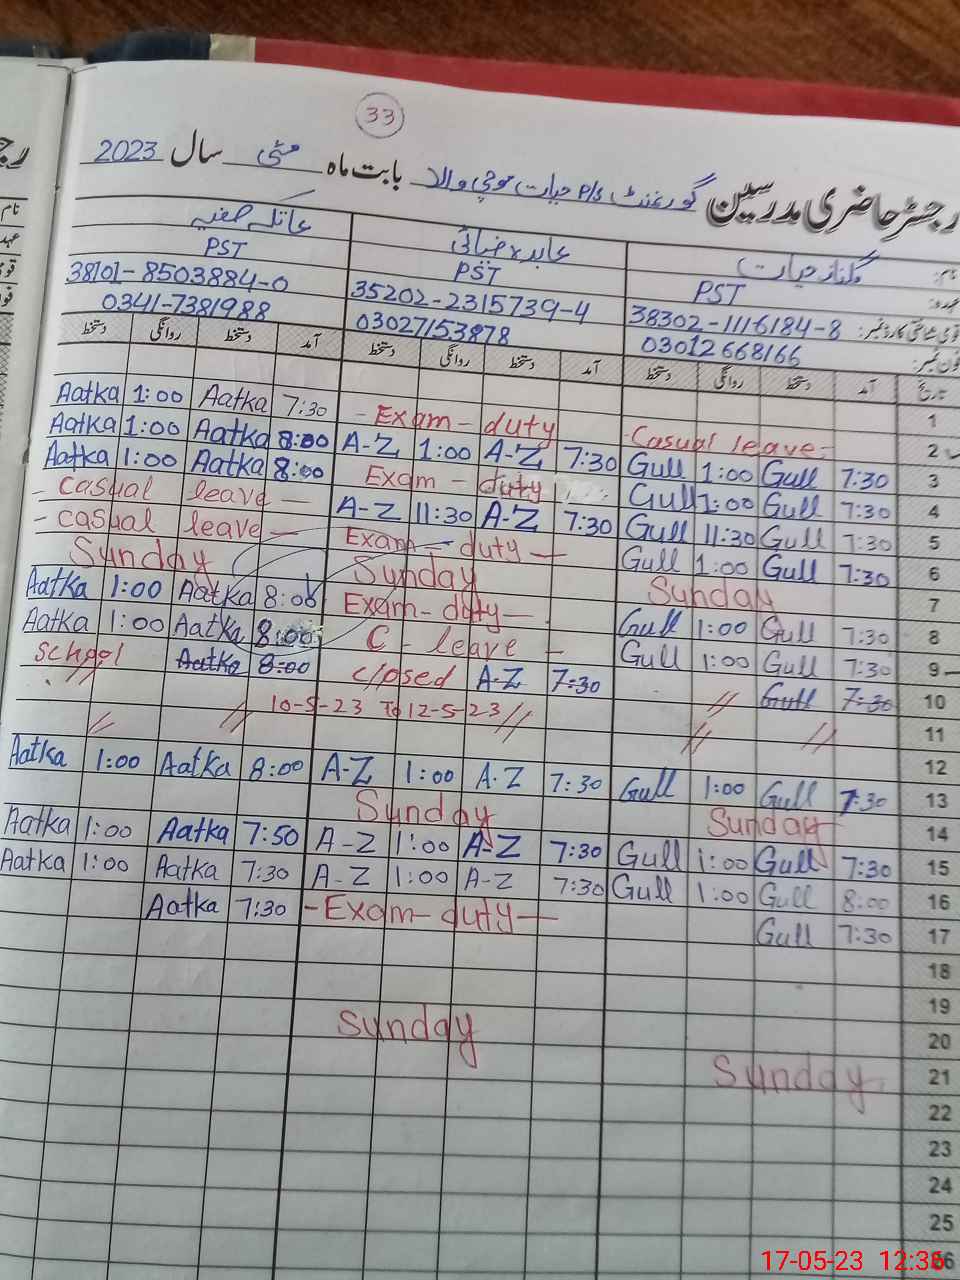 33
رجسٹر حاضری مدرسین گورنمنٹ P/S حیات موچی والا بابت ماہ مئی سال 2023
نام: گلناز حیات عابدہ ضیائی عاتکہ صفیہ
عہدہ: PST PST PST
قومی شناختی کارڈ نمبر: 38302-1116184-8 35202-2315739-4 38101-8503884-0
فون نمبر: 03012668166 03027153878 0341-7381988
تاریخ آمد دستخط روانگی دستخط آمد دستخط روانگی دستخط آمد دستخط روانگی دستخط
Aatka 1:00 Aatka 7:30 - Exam - duty 1
Aatka 1:00 Aatka 8:00 A-Z 1:00 A-Z 7:30 Casual leave - 2
Aatka 1:00 Aatka 8:00 Exam - duty Gull 1:00 Gull 7:30 3
- casual leave - A-Z 11:30 A-Z 7:30 Gull 1:00 Gull 7:30 4
- casual leave - Exam - duty - Gull 11:30 Gull 7:30 5
Sunday Sunday Gull 1:00 Gull 7:30 6
Aatka 1:00 Aatka 8:00 Exam - duty - Sunday 7
Aatka 1:00 Aatka 8:00 C - leave - Gull 1:00 Gull 7:30 8
school Aatka 8:00 closed A-Z 7:30 Gull 1:00 Gull 7:30 9
10-5-23 To 12-5-23 // // Gull 7:30 10
// // // // 11
Aatka 1:00 Aatka 8:00 A-Z 1:00 A-Z 7:30 12
Sunday Gull 1:00 Gull 7:30 13
Aatka 1:00 Aatka 7:50 A-Z 1:00 A-Z 7:30 Sunday 14
Aatka 1:00 Aatka 7:30 A-Z 1:00 A-Z 7:30 Gull 1:00 Gull 7:30 15
Aatka 7:30 - Exam - duty - Gull 1:00 Gull 8:00 16
Gull 7:30 17
18
19
Sunday 20
Sunday 21
22
23
24
25
26
17-05-23 12:36